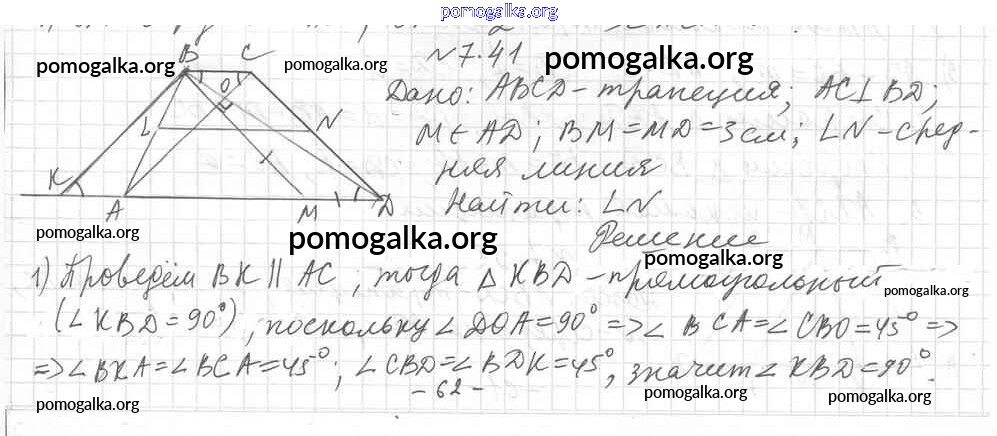 pomogalka.org
№7.41
pomogalka.org pomogalka.org pomogalka.org
B C
O
L N
K
A M D
Дано: ABCD - трапеция; AC⊥BD;
M ∈ AD; BM = MD = 3 см; LN - сред-
няя линия
Найти: LN
Решение
pomogalka.org pomogalka.org pomogalka.org
1) Проведём BK ∥ AC, тогда △ KBD - прямоугольный
pomogalka.org
(∠KBD = 90°), поскольку ∠DOA = 90° => ∠BCA = ∠CBO = 45° =>
=> ∠BKA = ∠BCA = 45°; ∠CBD = ∠BDK = 45°, значит ∠KBD = 90°.
- 62 -
pomogalka.org pomogalka.org pomogalka.org